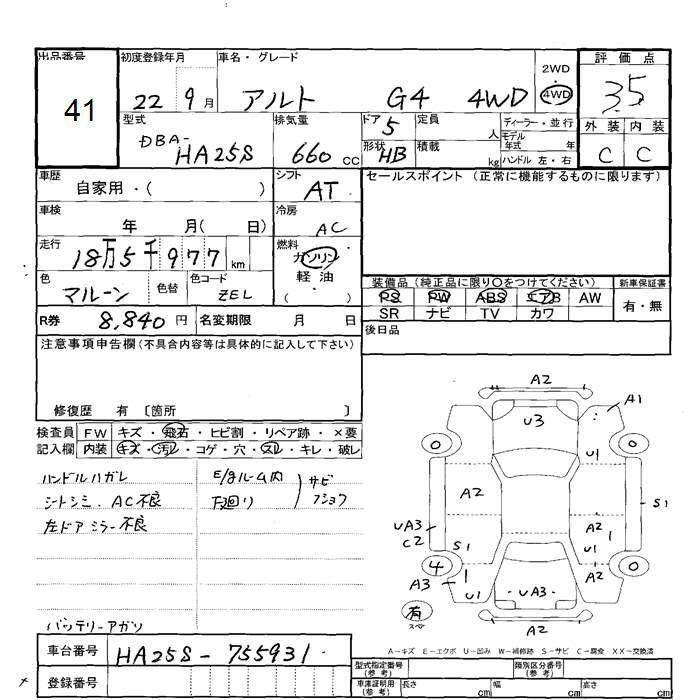 出品番号 初度登録年月 車名・グレード 2WD 評価点
41 22 9月 アルト G4 4WD 4WD 3.5
型式 排気量 ドア 5 定員 人 ディーラー・並行 外装 内装
DBA-HA25S 660 CC 形状 HB 積載 kg モデル年式 年 C C
ハンドル 左・右
車歴 自家用・( ) シフト AT セールスポイント (正常に機能するものに限ります)
車検 年 月( 日) 冷房 AC
走行 18万5千977 km 燃料 ガソリン
軽油
( )
色 マルーン 色替 色コード ZEL
装備品 (純正品に限り○をつけてください) 新車保証書
PS PW ABS エアB AW 有・無
SR ナビ TV カワ
R券 8,840円 名変期限 月 日 後日品
注意事項申告欄(不具合内容等は具体的に記入して下さい)
修復歴 有 〔箇所 〕
検査員 FW キズ・飛石・ヒビ割・リペア跡・×要
記入欄 内装 キズ・汚レ・コゲ・穴・スレ・キレ・破レ
ハンドルハガレ E/gルーム内 サビ
シートシミ、AC不良 下回り フショク
左ドアミラー不良
バッテリーアガリ
A2
U3 A1
0 0
U1
A2 S1
UA3 A2 1
C2 S1
4 A2 0
A3 1 U1 UA3
有
スペア A2
A-キズ E-エクボ U-凹み W-補修跡 S-サビ C-腐食 XX-交換済
車台番号 HA25S-755931
登録番号
型式指定番号(参考) 類別区分番号(参考)
車庫証明用(参考) 長さ cm 幅 cm 高さ cm